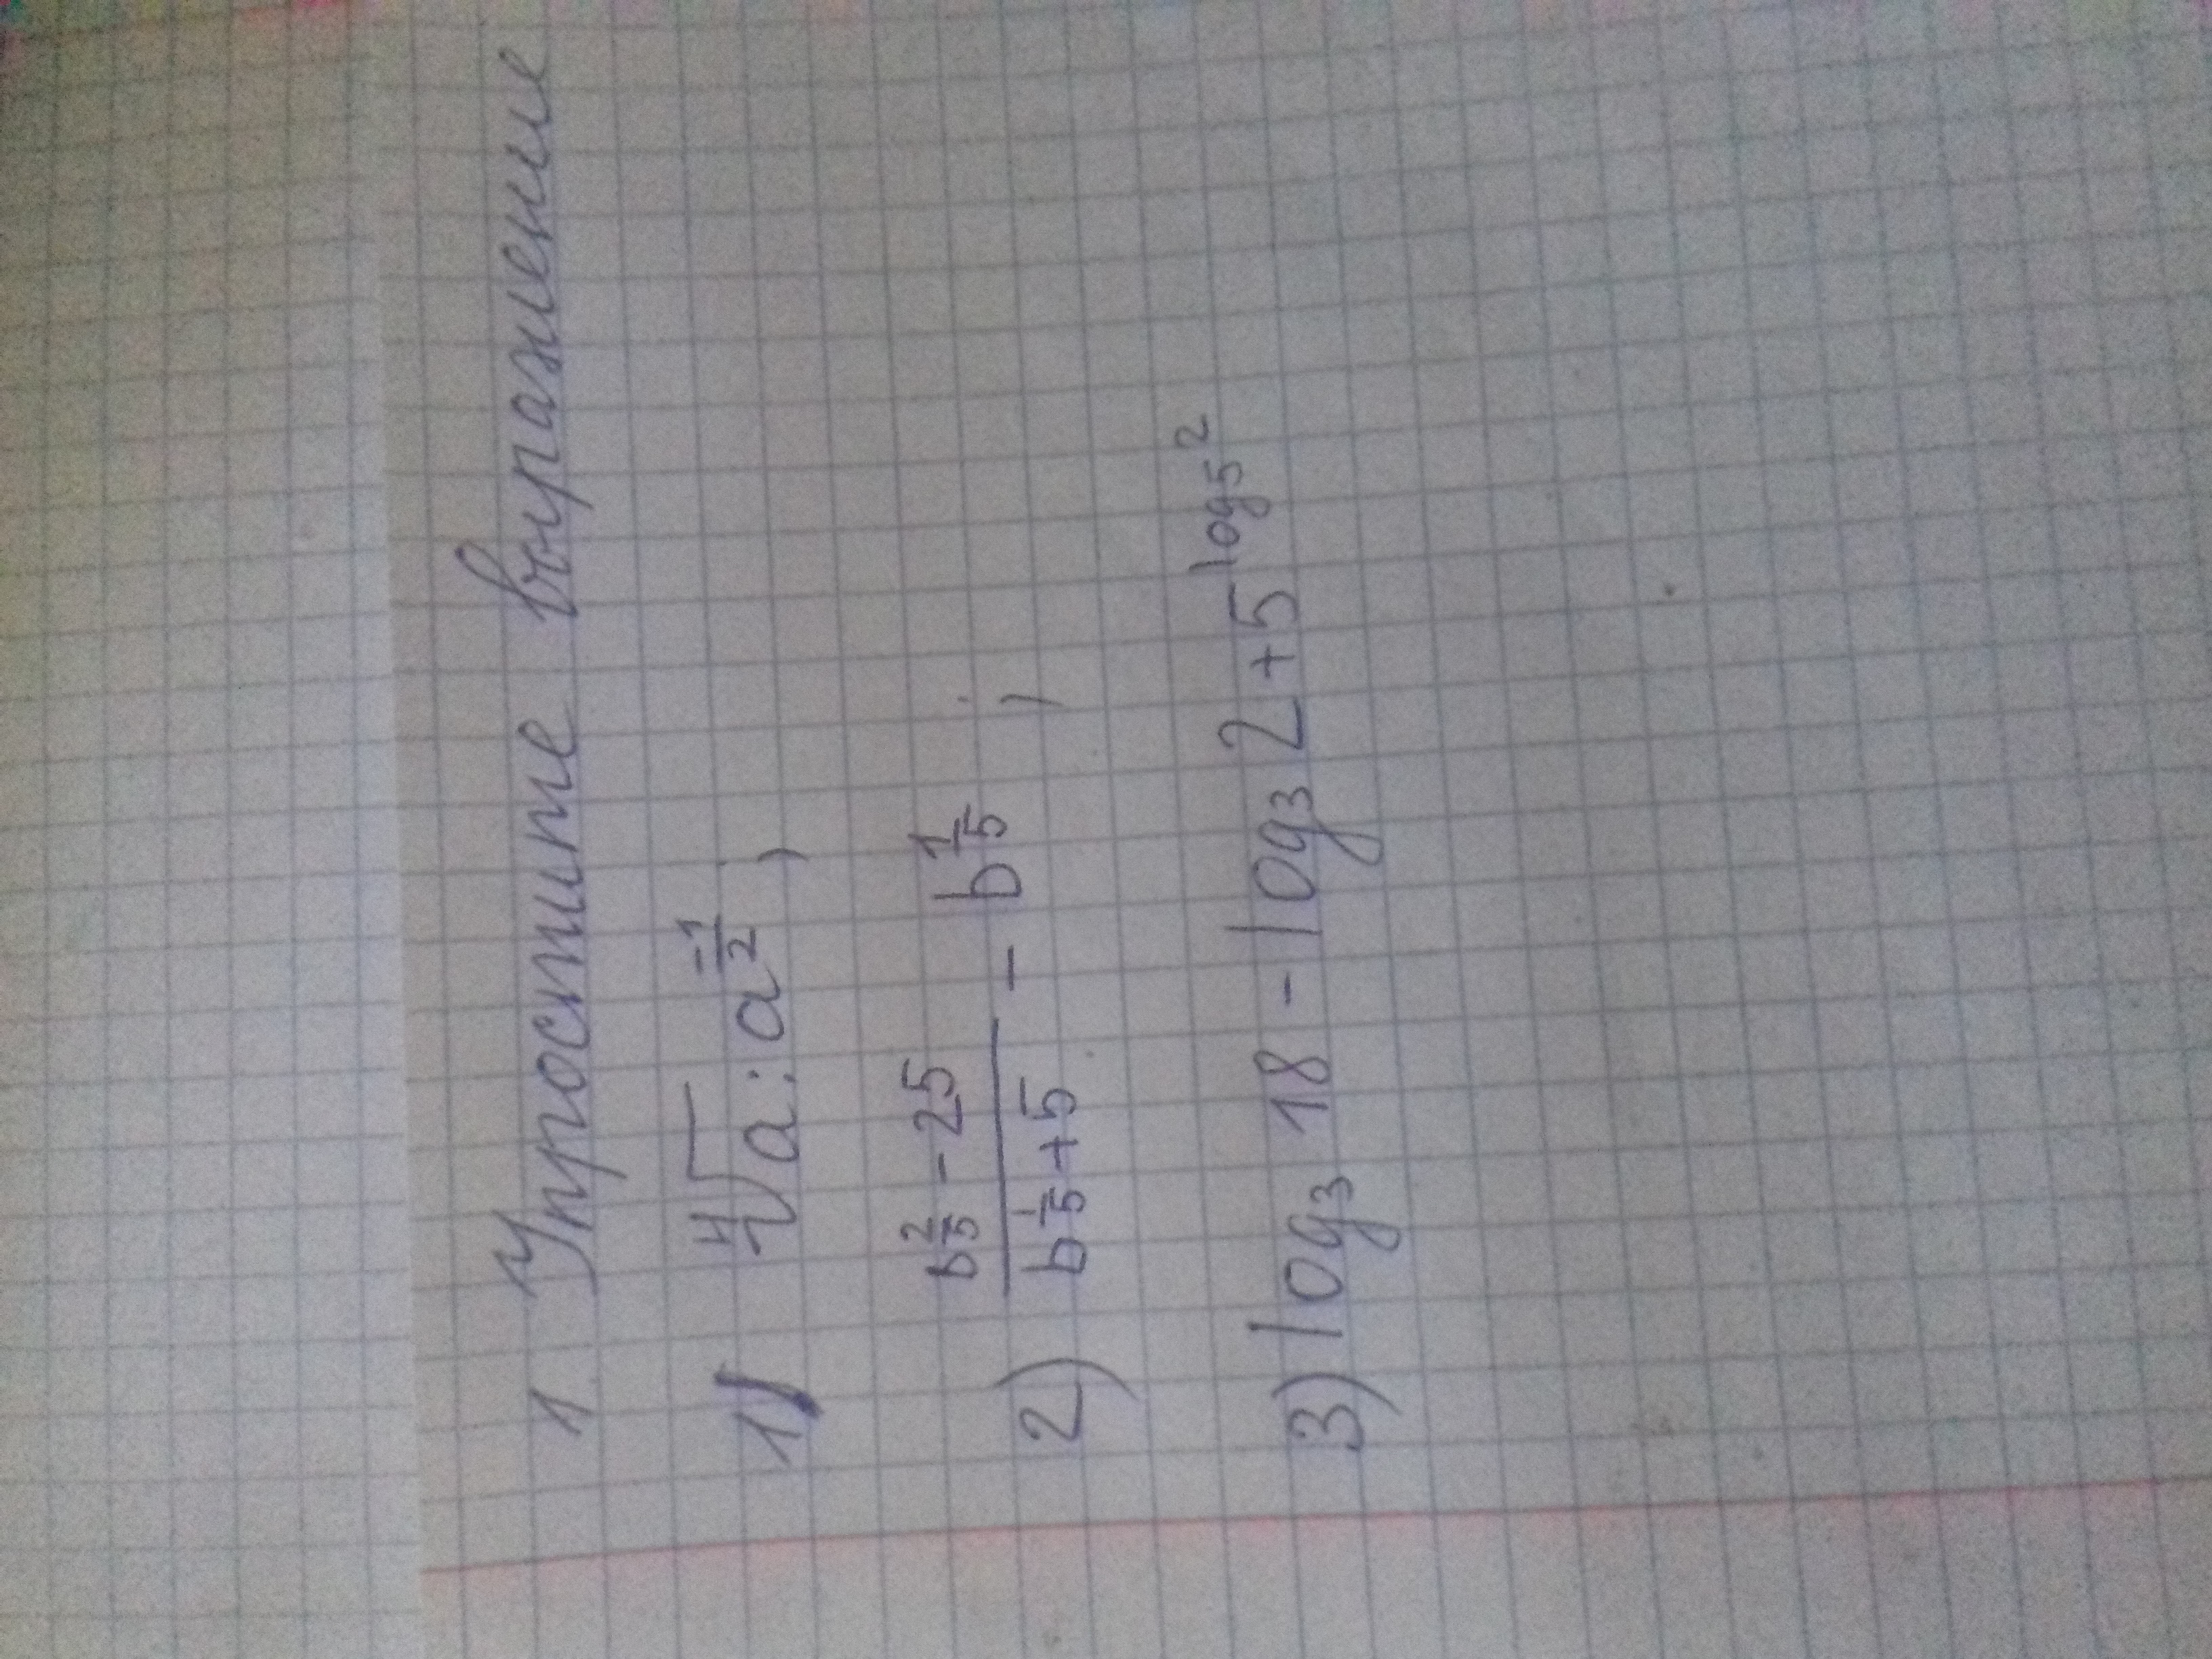 1. Упростите выражение
1) ⁴√a : a^(-1/2) ,
2) (b^(2/5) - 25)/(b^(1/5) + 5) - b^(1/5) ;
3) log₃ 18 - log₃ 2 + 5^(log₅ 2)